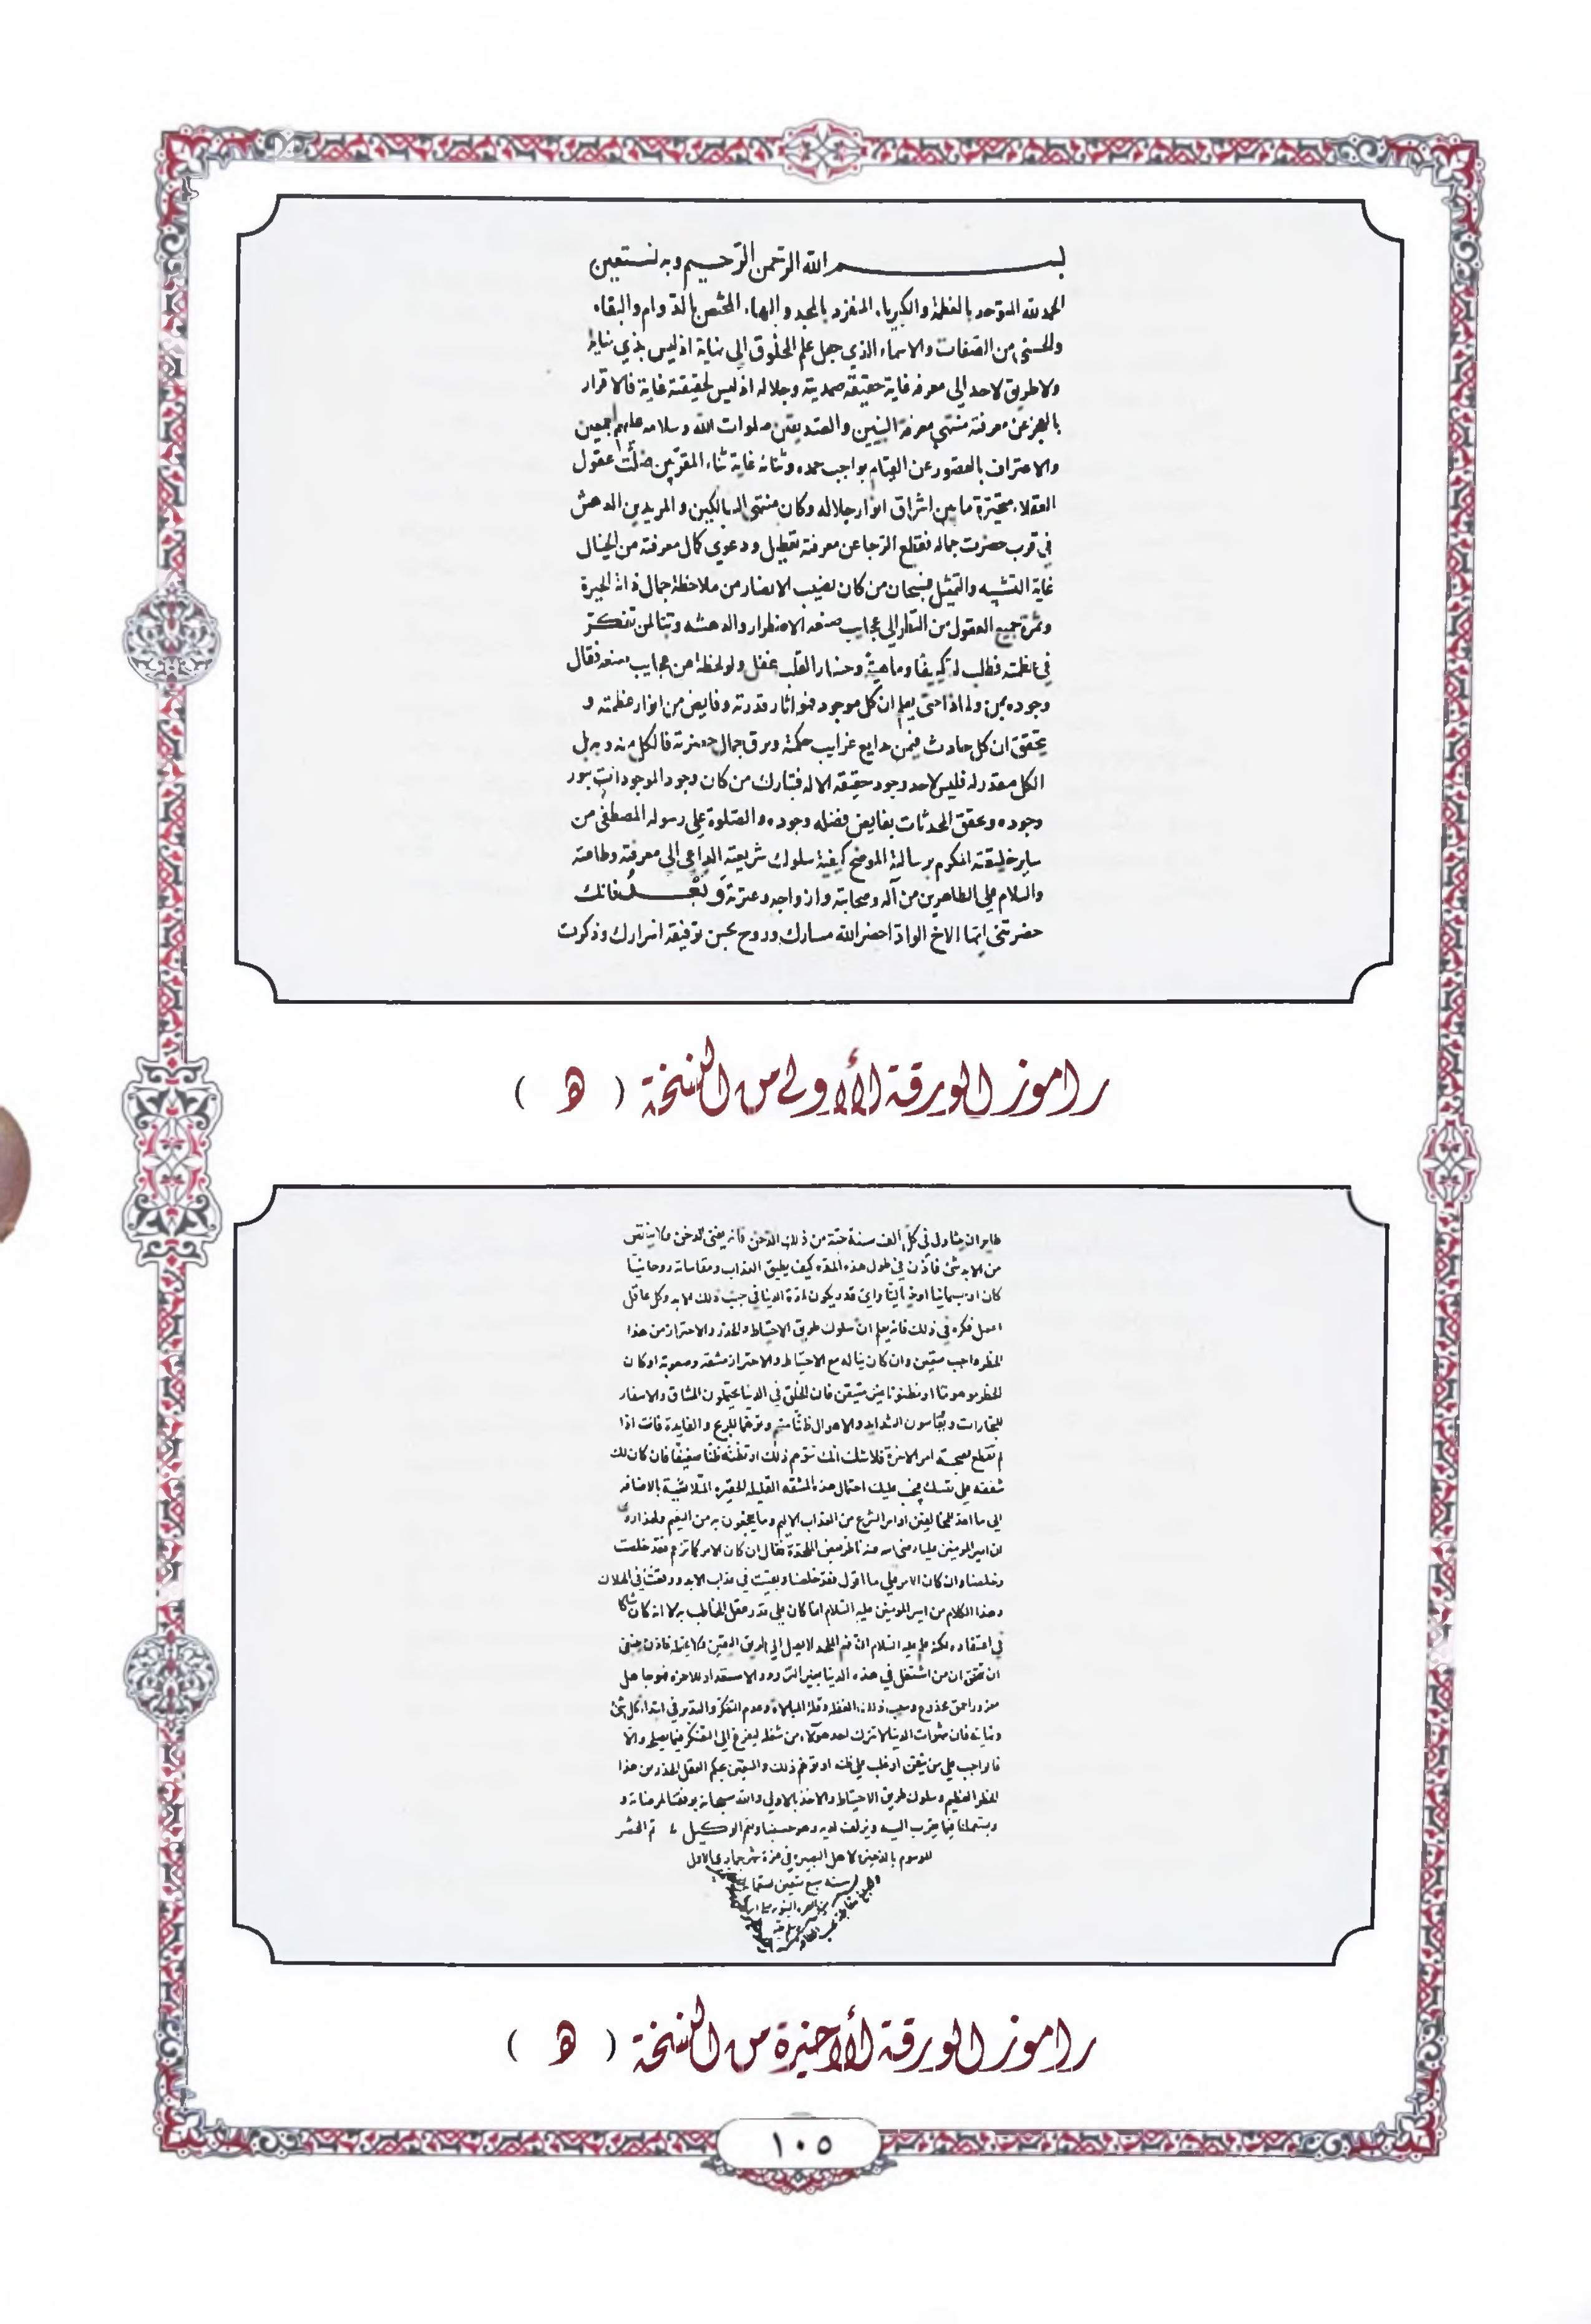 بسم الله الرحمن الرحيم وبه نستعين
الحمد لله المتوحد بالعظمة والكبرياء المتفرد بالمجد والبهاء المختص بالدوام والبقاء
والحسنى من الصفات والاسماء الذي جعل علم الخلوق الى نهاية اذ ليس بذي نهاية
ولا طريق لاحد الى معرفة غاية حقيقة صمديته وجلاله اذ ليس لحقيقته غاية فالاقرار
بالعجز عن معرفته منتهى معرفة النبيين والصديقين صلوات الله وسلامه عليهم اجمعين
والاعتراف بالقصور عن القيام بواجب حمده وثنائه غاية ثناء المقربين ضلت عقول
العقلاء متحيرة ما بين اشراق انوار جلاله وكان منتهى السالكين والمريدين الدهش
في قرب حضرت جماله فقطع الرجا عن معرفته تعطيل ودعوي كمال معرفته من الخيال
غاية التشبيه والتمثيل فسبحان من كان نصيب الابصار من ملاحظة جمال ذاته الحيرة
وثمرة جميع العقول من النظر الى عجايب صنعه الاضطرار والدهشه وتبا لمن تفكر
في عظمته فطلب له كيفا وماهية وحنار القلب غفل ولو لحظة من عجايب صنعه فقال
وجوده بمن ولماذا حتى يعلم ان كل موجود فهو اثار قدرته وفايض من انوار عظمته و
يتحقق ان كل حادث فمن بدايع غرايب حكمته وبرق جمال حضرته فالكل منه وبه بل
الكل مقدر له فليس لاحد وجود حقيقة الا له فتبارك من كان وجود الموجودات بنور
وجوده وتحقق المحدثات بفايض فضله وجوده والصلوة على رسوله المصطفى من
ساير خليقته المكرم برسالته الموضح كيفية سلوك شريعته الداعي الى معرفته وطاعته
والسلام على الطاهرين من آله وصحابته وازواجه وعترته وبعد فانك
حضرتني ايها الاخ الواد احضر الله مسارك وروح بحسن توفيقه اسرارك وذكرت
راموز الورقة الأولى من النسخة ( ه )
طاير ان يتناول في كل الف سنة حبة من ذلك الدخن فانه يفنى الدخن ولا يتناقص
من الابد شئ فاذن في طول هذه المدة كيف يطيق العذاب ومقاساته روحانيا
كان او جسمانيا او خياليا واي قدر يكون لمدة الدنيا في جنب ذلك الابد وكل عاقل
اعمل فكره في ذلك فانه يعلم ان سلوك طريق الاحتياط والحذر والاحتراز من هذا
الخطر واجب متعين وان كان يناله مع الاحتياط والاحتراز مشقة وصعوبة او كان
الخطر موهوما او مظنونا غير متيقن فان الخلق في الدنيا يحتملون المشاق والاسفار
للتجارات ويقاسون الشدايد والاهوال ظنا منهم وتوهما للربح والفايدة فانت اذا
لم تقطع بصحة امر الاخرة فلا شك انك تتوهم ذلك او تظنه ظنا ضعيفا فان كان لك
شفقه على نفسك فيجب عليك احتمال هذه المشقه القليله الحقيره المتلاشية بالاضافه
الى ما اعد للمخالفين اوامر الشرع من العذاب الاليم وما يحبون به من النعيم ولهذا روى
ان امير المومنين عليا رضى الله عنه ناظر بعض الملحدة فقال ان كان الامر كما تزعم فقد خلصت
وخلصنا وان كان الامر على ما اقول فقد خلصنا وبقيت في عذاب الابد ووقعت في الهلاك
وهذا الكلام من امير المومنين عليه السلام انما كان على قدر عقل المخاطب به لا انه كان شاكا
في اعتقاده لكنه علم عليه السلام ان فهم الملحد لا يصل الى طريق اليقين
ان تتحقق ان من اشتغل في هذه الدنيا بغير التزود والاستعداد للاخرة فهو جاهل
مغرور احمق مخدوع وسبب ذلك الغفلة وقلة المبالاة وعدم التفكر والتدبر في ابتداء كل شئ
ونهايته فان شهوات الدنيا لا تترك احد هولاء من شغله ليفرغ الى التفكر فيما يصلح والا
فالواجب على من تيقن او غلب على ظنه او توهم ذلك واليقين بحكم العقل الحذر من هذا
الخطر العظيم وسلوك طريق الاحتياط والاخذ بالاولى والله سبحانه يوفقنا لمرضاته و
ويستعملنا فيما يقرب اليه ويزلف لديه وهو حسبنا ونعم الوكيل تم الحشر
الموسوم بالذخيرة لاهل البصيرة في غرة شهر جمادى الاول
سنه سبع
راموز الورقة الأخيرة من النسخة ( ه )
١٠٥